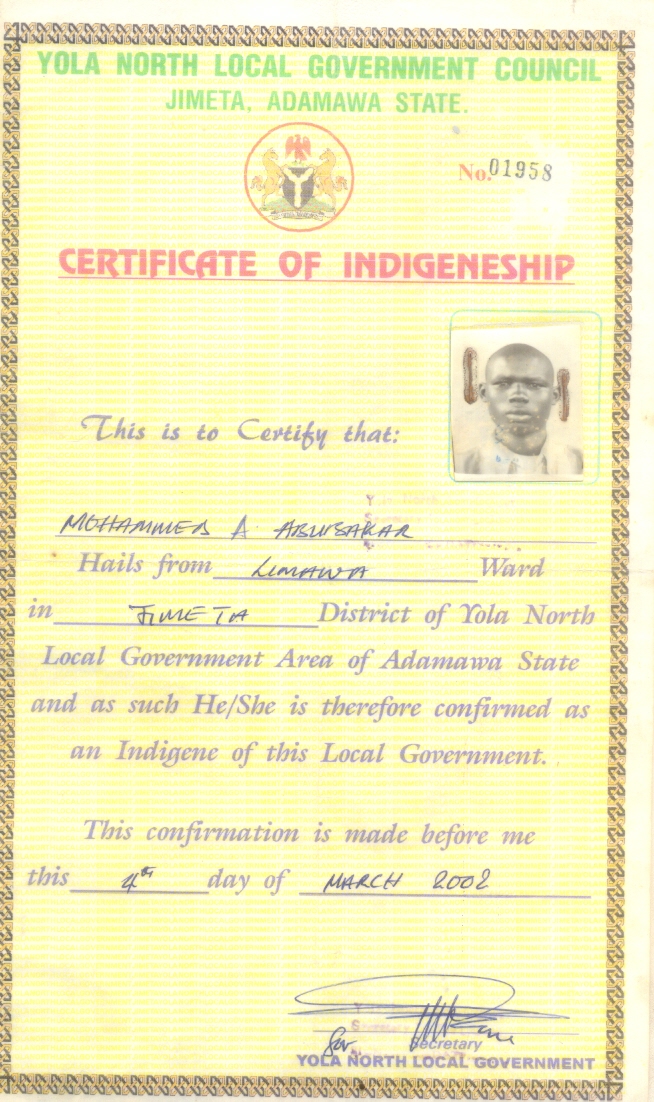 YOLA NORTH LOCAL GOVERNMENT COUNCIL
JIMETA, ADAMAWA STATE.
No. 01958
CERTIFICATE OF INDIGENESHIP
This is to Certify that:
MOHAMMED A ABUBAKAR
Hails from LIMAWA Ward
in JIMETA District of Yola North
Local Government Area of Adamawa State
and as such He/She is therefore confirmed as
an Indigene of this Local Government.
This confirmation is made before me
this 4th day of MARCH 2002
for Secretary
YOLA NORTH LOCAL GOVERNMENT